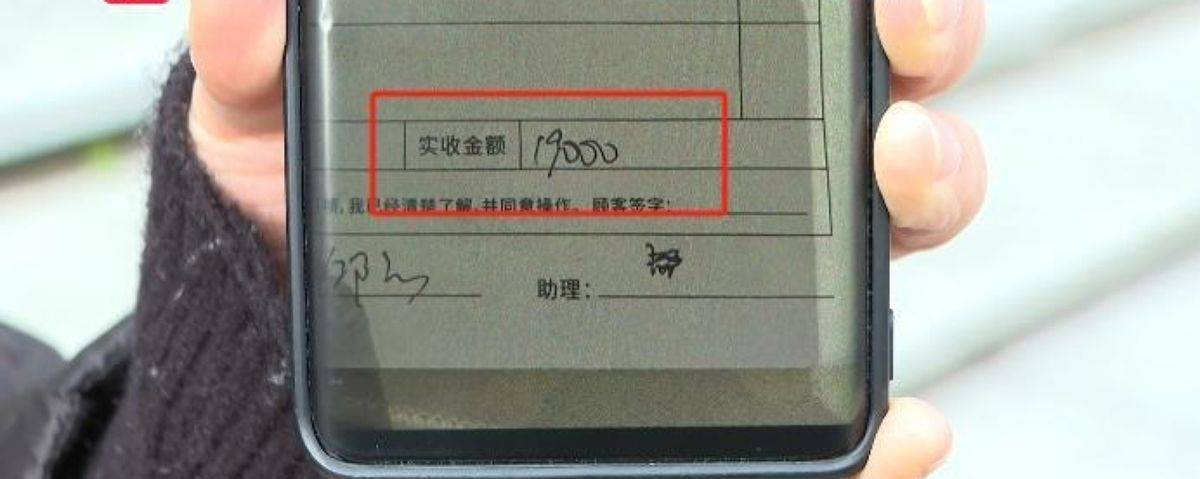 实收金额 19000
我已经清楚了解,并同意操作。顾客签字:
助理: